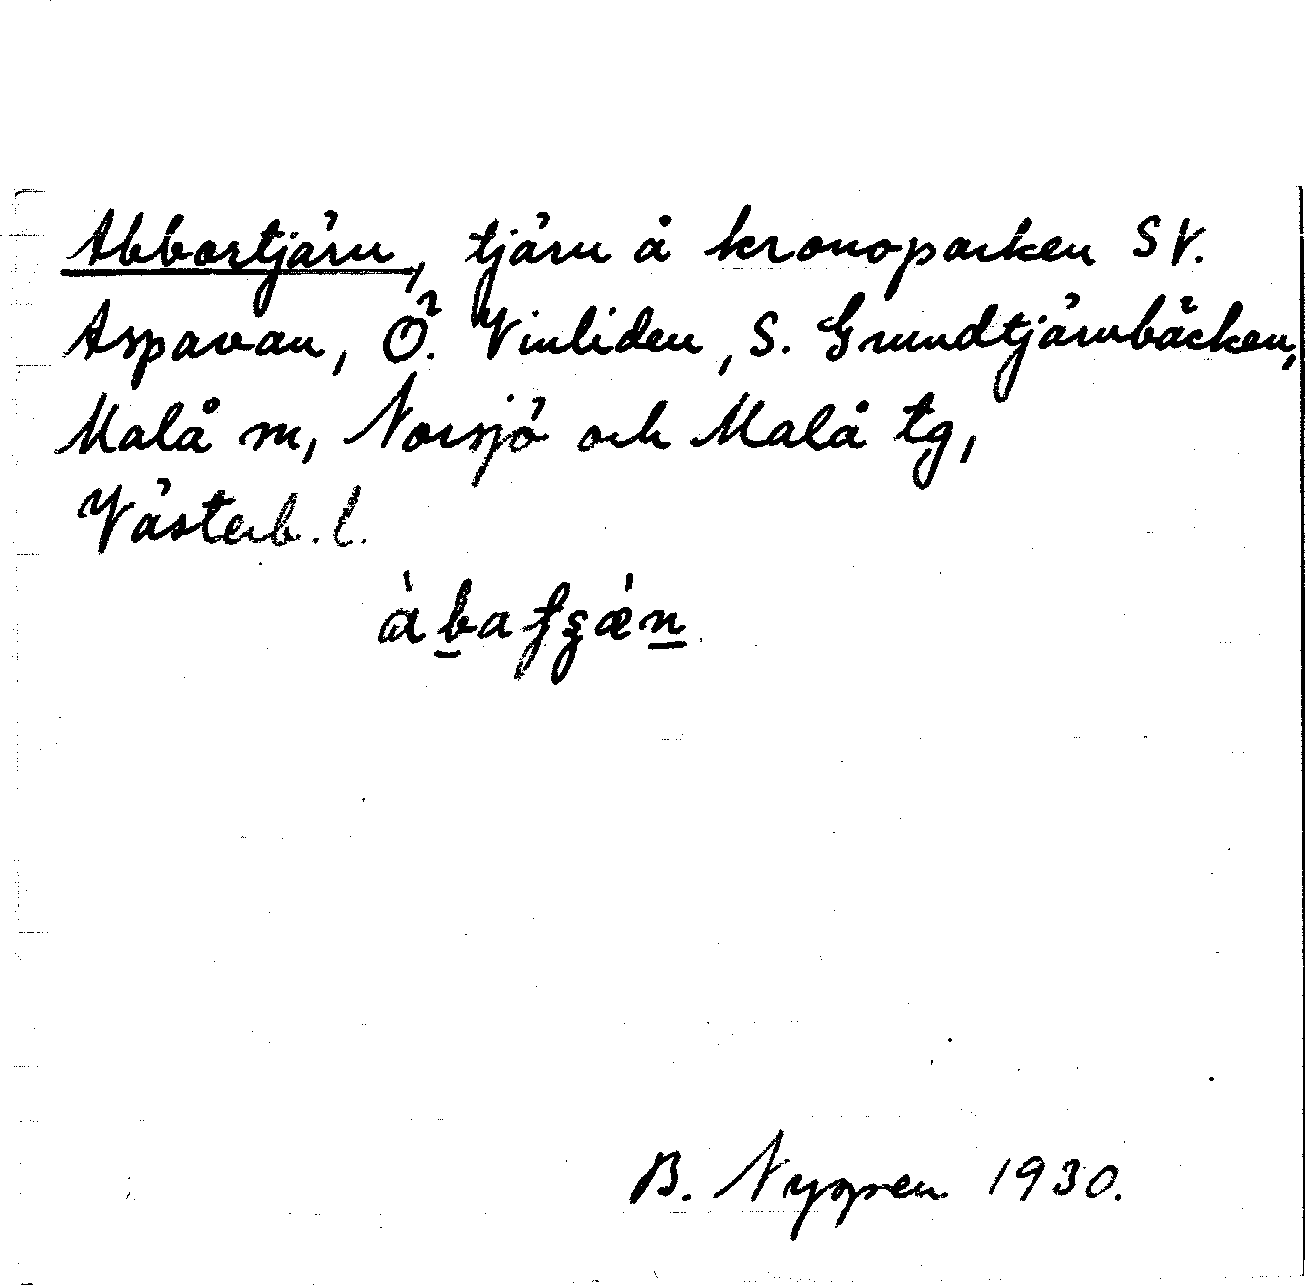 Abbortjärn, tjärn å kronoparken SV.
Aspavan, Ö. Vinliden, S. Grundtjärnbäcken,
Malå sn, Norsjö och Malå tg,
Västerb. l.
B. Nygren 1930.